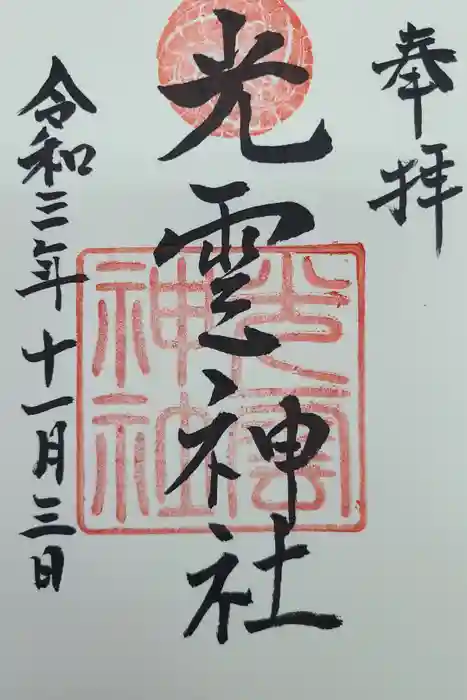 奉拝
光雲神社
光雲
神社
令和三年十一月三日